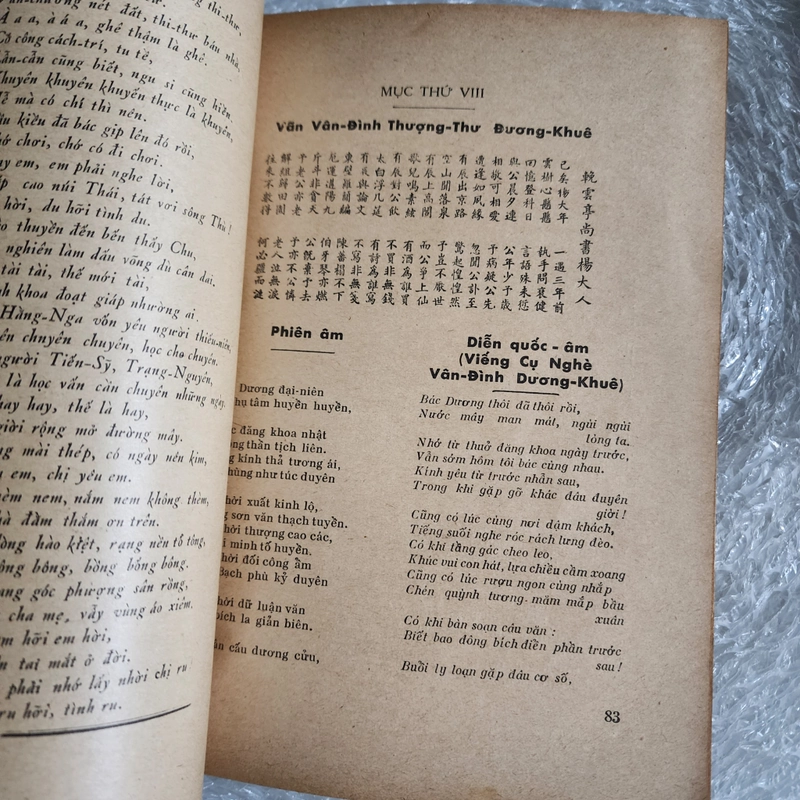 thi-thư,
nết đất, thi-thư báu nhà,
À a a, à á a, ghê thậm là ghê.
công cách-trí, tu tề,
cũng biết, ngu si cũng hiền.
khuyên khuyên thực là khuyên,
mà có chí thì nên.
kiều đã bác gíp lên đó rồi,
chơi, chớ có đi chơi.
em, em phải nghe lời,
cao núi Thái, tát vơi sông Thù !
hời, du hời tình du.
thuyền đến bến thấy Chu,
nghiên làm đấu võng dù cân đai.
tài tài, thế mới tài,
khoa đoạt giáp nhường ai.
Hằng-Nga vốn yêu người thiếu-niên,
chuyên chuyên, học cho chuyên.
người Tiến-Sỹ, Trạng-Nguyên,
là học vấn cần chuyên những ngày.
hay hay, thế là hay,
giời rộng mở đường mây.
mài thép, có ngày nên kim,
em, chị yêu em.
nem, nắm nem không thèm,
đầm thắm ơn trên.
hào kiệt, rạng nền tổ tông,
bông bông, bồng bống bông.
góc phượng sân rồng,
cha mẹ, vẫy vùng áo xiêm.
hỡi em hời,
tai mắt ở đời.
phải nhớ lấy nhời chị ru
ru hỡi, tình ru.
MỤC THỨ VIII
Vãn Vân-Đình Thượng-Thư Dương-Khuê
輓雲亭尚書楊大人
已矣楊大年 一過三年前
雲樹心懸懸 執手問衰健
回憶登科日 言語殊未愆
與公晨夕連 公年少于歲
相敬可相愛 于病疑公先
遭逢如夙緣 忽聞公訃至
有辰出京路 驚起惶惶然
空山聞落泉 于豈不厭世
有辰上高閣 而公爭上仙
歌兒鳴素絃 有酒為誰買
有辰對公飲 不買非無錢
太白浮几筵 有討為誰寫
有辰與論文 不寫非無
東壁羅簡編 陳蕃榻不下
厄運遭陽九 伯牙琴亦燃
斤斗非貪天 公既棄于去
于老公亦老 于亦不公憐
解組歸田園 老人泣無淚
往來不數得 何必強而漣
Phiên âm
Dương đại-niên
tâm huyền huyền,
đăng khoa nhật
thần tịch liên.
kính thả tương ái,
như túc duyên
xuất kinh lộ,
sơn văn thạch tuyền.
thượng cao các,
minh tố huyền.
đối công ẩm
Bạch phù kỷ duyên
dữ luận văn
bích la giản biên.
cấu dương cửu,
Diễn quốc-âm
(Viếng Cụ Nghè
Vân-Đình Dương-Khuê)
Bác Dương thôi đã thôi rồi,
Nước mây man mát, ngùi ngùi
lòng ta.
Nhớ từ thuở đăng khoa ngày trước,
Vẫn sớm hôm tôi bác cùng nhau.
Kính yêu từ trước nhẫn sau,
Trong khi gặp gỡ khác đâu duyên
giời !
Cũng có lúc cùng nơi dặm khách,
Tiếng suối nghe róc rách lưng đèo.
Có khi tầng gác cheo leo,
Khúc vui con hát, lựa chiều cầm xoang
Cũng có lúc rượu ngon cùng nhắp
Chén quỳnh tương. măm mắp bầu
xuân
Có khi bàn soạn câu văn :
Biết bao đông bích điển phần trước
sau !
Buổi ly loạn gặp đâu cơ số,
83